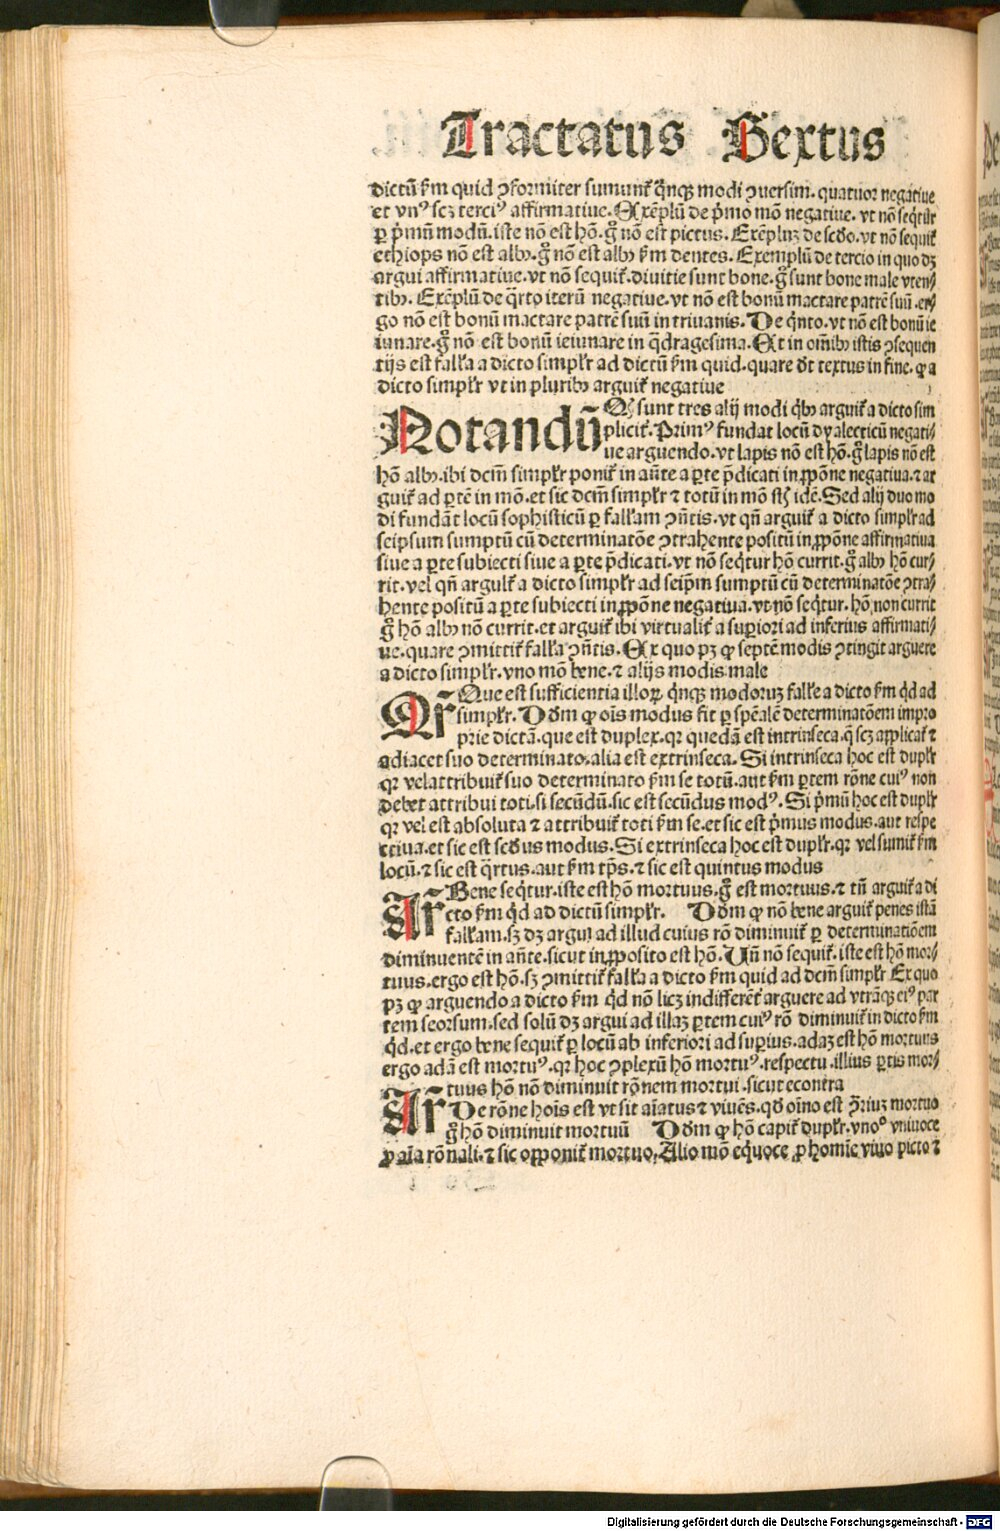 Tractatus Sextus
dictū ẜm quid ꝯformiter sumunt᷑ q̄nqꝫ modi ꝯuersim. quatuor negatiue
et vnꝰ scꝫ terciꝰ affirmatiue. Exēplū de p̄mo mō negatiue. vt nō seq̄tur
ꝑ p̄mū modū. iste nō est hō. gͦ nō est pictus. Exēpluꝫ de scd̄o. vt nō sequit᷑
ethiops nō est albꝰ. gͦ nō est albꝰ ẜm dentes. Exemplū de tercio in quo dꝫ
argui affirmatiue. vt nō sequit᷑. diuitie sunt bone. gͦ sunt bone male vten⸗
tibꝰ. Exēplū de q̄rto iterū negatiue. vt nō est bonū mactare patrē suū. er⸗
go nō est bonū mactare patrē suū in triuanis. De q̄nto. vt nō est bonū ie
iunare. gͦ nō est bonū ieiunare in q̄dragesima. Et in oīm̄bꝰ istis ꝯsequen
tijs est fall̓a a dicto simpl̓r ad dictū ẜm quid. quare dt̄ textus in fine. ꝙ a
dicto simpl̓r vt in pluribꝰ arguit᷑ negatiue
Notandū Qꝫ sunt tres alij modi q̄bꝰ arguit᷑ a dicto sim
plicit᷑. Primꝰ fundat locū dyalecticū negati⸗
ue arguendo. vt lapis nō est hō. gͦ lapis nō est
hō albꝰ. ibi dcm̄ simpl̓r ponit᷑ in an̄te a ꝑte p̄dicati in ꝓpōne negatiua. ⁊ ar
guit᷑ ad ꝑtē in mō. et sic dcm̄ simpl̓r ⁊ totū in mō st̄ idē. Sed alij duo mo
di fundāt locū sophisticū ꝑ fall̓am ꝯn̄tis. vt qn̄ arguit᷑ a dicto simpl̓r ad
seipsum sumptū cū determinatōe ꝯtrahente positū in ꝓpōne affirmatiua
siue a ꝑte subiecti siue a ꝑte p̄dicati. vt nō seq̄tur hō currit. gͦ albꝰ hō cur⸗
rit. vel qn̄ arguit᷑ a dicto simpl̓r ad seip̄m sumptū cū determinatōe ꝯtra⸗
hente positū a ꝑte subiecti in ꝓpōne negatiua. vt nō seq̄tur. hō non currit
gͦ hō albꝰ nō currit. et arguit᷑ ibi virtualit᷑ a suꝑiori ad inferius affirmati⸗
ue. quare ꝯmittit᷑ fall̓a ꝯn̄tis. Ex quo pꝫ ꝙ septē modis ꝯtingit arguere
a dicto simpl̓r. vno mō bene. ⁊ alijs modis male
Qr̄ Que est sufficientia illoꝝ q̄nqꝫ modoruꝫ fall̓e a dicto ẜm qd̄ ad
simpl̓r. Dd̄m ꝙ oīs modus fit ꝑ spēalē determinatōem impro
prie dictā. que est duplex. qꝛ quedā est intrinseca. q̄ scꝫ applicat᷑ ⁊
adiacet suo determinato. alia est extrinseca. Si intrinseca hoc est dupl̓r
qꝛ vel attribuit᷑ suo determinato ẜm se totū. aut ẜm ꝑtem rōne cuiꝰ non
debet attribui toti. si secūdū. sic est secūdus modꝰ. Si p̄mū hoc est dupl̓r
qꝛ vel est absoluta ⁊ attribuit᷑ toti ẜm se. et sic est p̄mus modus. aut respe
ctiua. et sic est scd̄us modus. Si extrinseca hoc est dupl̓r. qꝛ vel sumit᷑ ẜm
locū. ⁊ sic est q̄rtus. aut ẜm tp̄s. ⁊ sic est quintus modus
Ar̄ Bene seq̄tur. iste est hō mortuus. gͦ est mortuus. ⁊ tn̄ arguit᷑ a di
cto ẜm qd̄ ad dictū simpl̓r. Dd̄m ꝙ nō bene arguit᷑ penes istā
fall̓am. sꝫ dꝫ argui ad illud cuius rō diminuit᷑ ꝑ determinatiōem
diminuentē in an̄te. sicut in ꝓposito est hō. Un̄ nō sequit᷑. iste est hō mor⸗
tuus. ergo est hō. sꝫ ꝯmittit᷑ fall̓a a dicto ẜm quid ad dcm̄ simpl̓r Ex quo
pꝫ ꝙ arguendo a dicto ẜm qd̄ nō licꝫ indifferēt᷑ arguere ad vtrāqꝫ eiꝰ par
tem seorsum. sed solū dꝫ argui ad illaꝫ ꝑtem cuiꝰ rō diminuit᷑ in dicto ẜm
qd̄. et ergo bene sequit᷑ ꝑ locū ab inferiori ad suꝑius. adaꝫ est hō mortuus
ergo adā est mortuꝰ. qꝛ hoc ꝯplexū hō mortuꝰ. respectu illius ꝑtis mor⸗
tuus hō nō diminuit rōnem mortui. sicut econtra
Ar̄ De rōne hoīs est vt sit aīatus ⁊ viuēs. qd̄ oīno est ꝯ̄triuꝫ mortuo
gͦ hō diminuit mortuū Dd̄m ꝙ hō capit᷑ dupl̓r. vnoͦ vniuoce
ꝓ aīa rōnali. ⁊ sic opponit᷑ mortuo. Alio mō eq̄uoce ꝓ homīe viuo picto ⁊
Digitalisierung gefördert durch die Deutsche Forschungsgemeinschaft - DFG